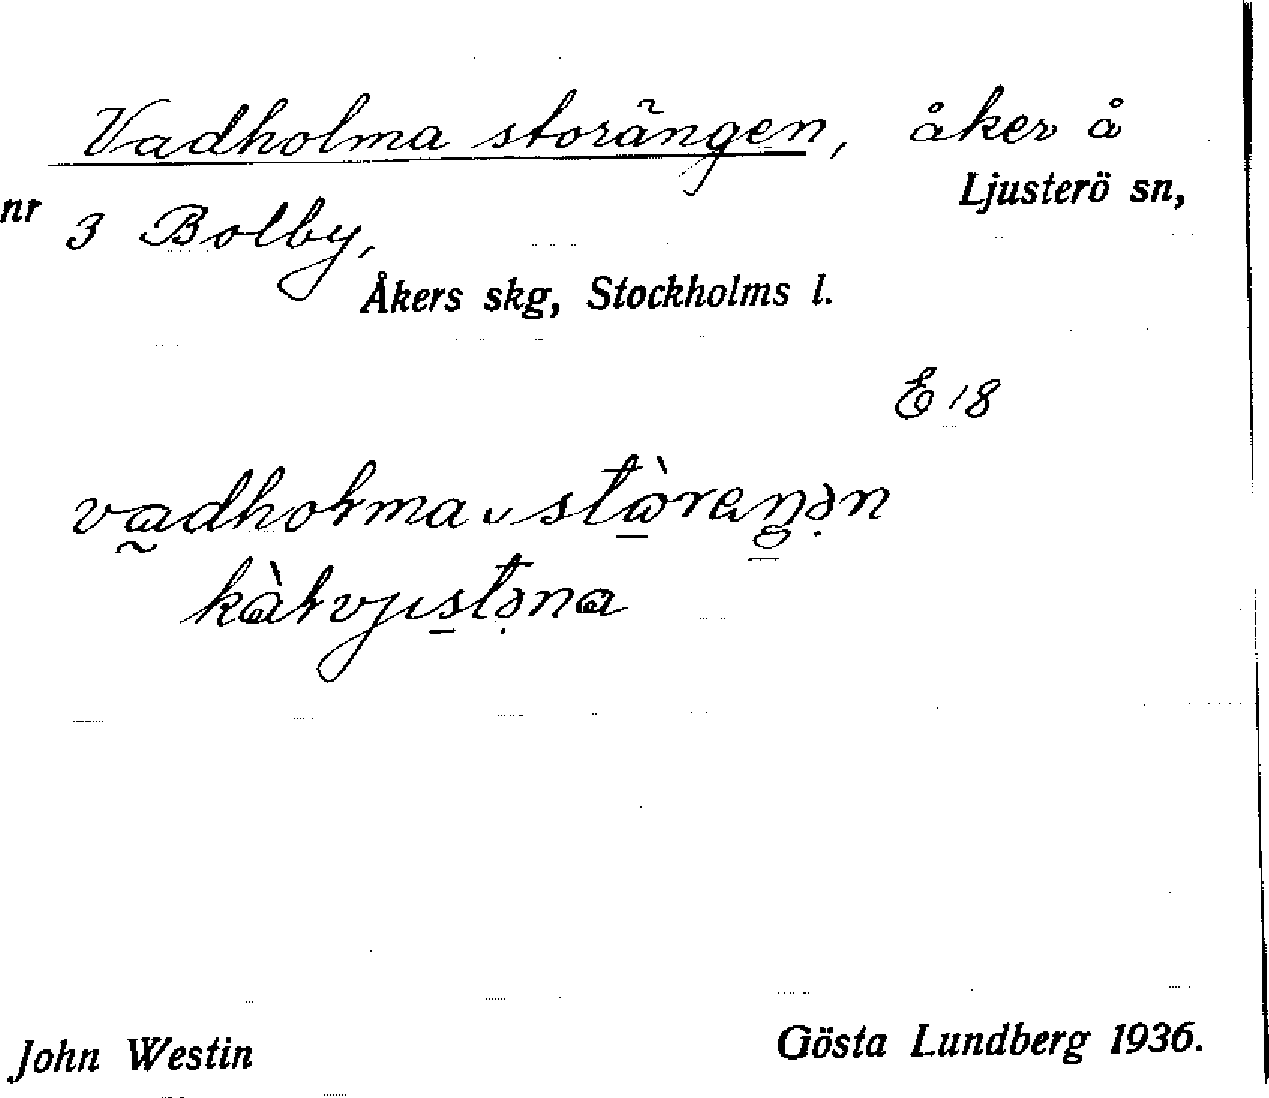 Vadholma storängen, åker å
Ljusterö sn,
nr 3 Bolby,
Åkers skg, Stockholms l.
E 18
John Westin
Gösta Lundberg 1936.